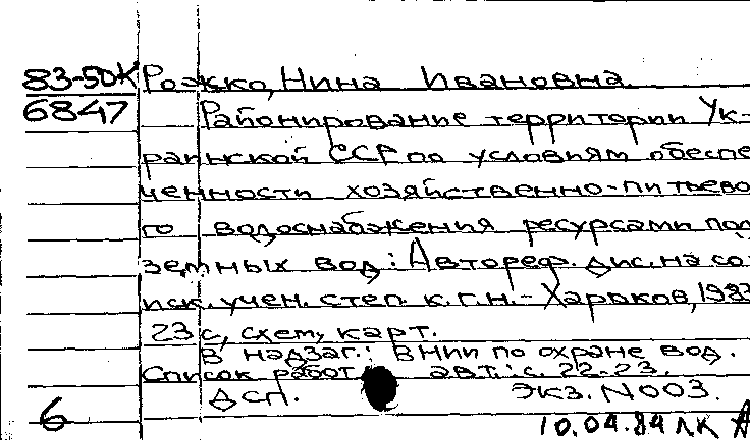 83-50К Рожко, Нина Ивановна.
6847 Районирование территории Ук-
раинской ССР по условиям обеспе
ченности хозяйственно-питьево
го водоснабжения ресурсами под
земных вод: Автореф. дис. на со
иск. учен. степ. к.г.н. - Харьков, 1983
23 с, схем, карт.
В надзаг.: ВНИИ по охране вод.
Список работ авт.: с. 22-23.
Дсп. экз. N003.
6 10.04.84 ЛК